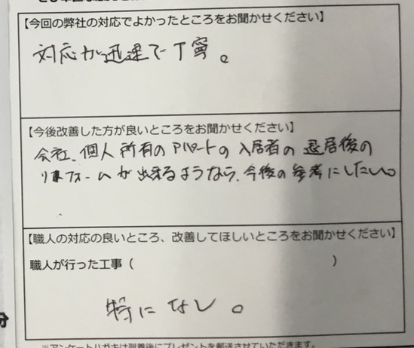 【今回の弊社の対応でよかったところをお聞かせください】
対応が迅速で丁寧。
【今後改善した方が良いところをお聞かせください】
会社、個人所有のアパートの入居者の退居後の
リフォームが出来るようなら、今後の参考にしたい。
【職人の対応の良いところ、改善してほしいところをお聞かせください】
職人が行った工事（　　　　　　　　　　）
特になし。
※アンケートハガキは到着後にプレゼントを郵送させていただきます。